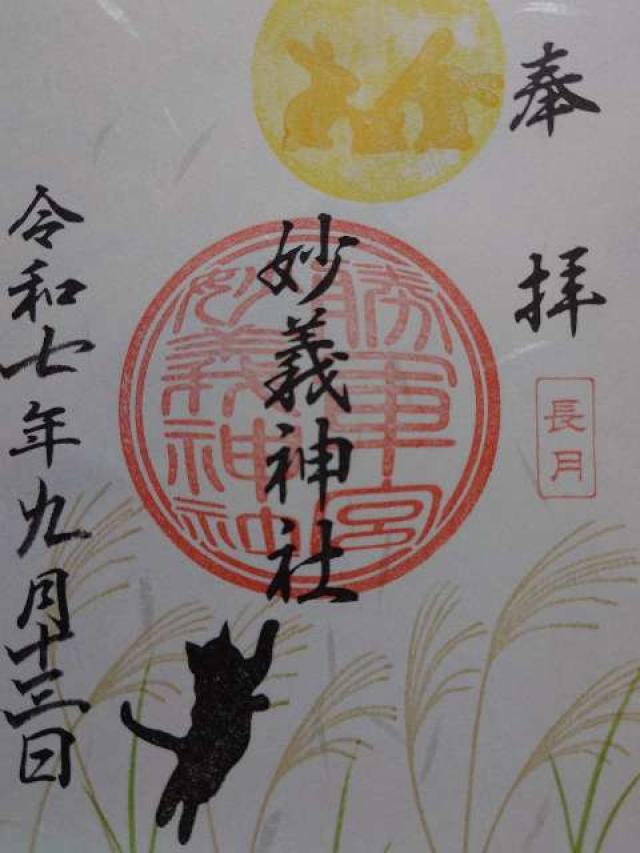 奉拝
長月
妙義神社
勝軍宮
妙義神社
令和七年九月十三日